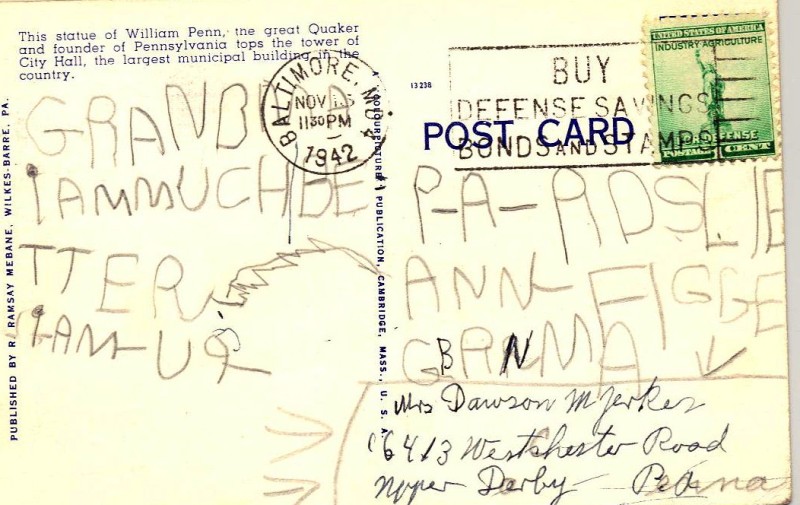 This statue of William Penn, the great Quaker
and founder of Pennsylvania tops the tower of
City Hall, the largest municipal building in the
country.
PUBLISHED BY R. RAMSAY MEBANE, WILKES-BARRE, PA.
GRANB
IAMMUCHBE
TTER
I-AM-UP
A COLOURPICTURE PUBLICATION, CAMBRIDGE, MASS., U. S. A.
13 238
BALTIMORE, MD.
NOV
11 30 PM
1942
BUY
DEFENSE SAVINGS
BONDS AND STAMPS
UNITED STATES OF AMERICA
INDUSTRY AGRICULTURE
FOR DEFENSE
POSTAGE CENT
POST CARD
ANN-FIGGE
B N
Mrs Dawson M Yerkes
6413 Westchester Road
Upper Derby Pa